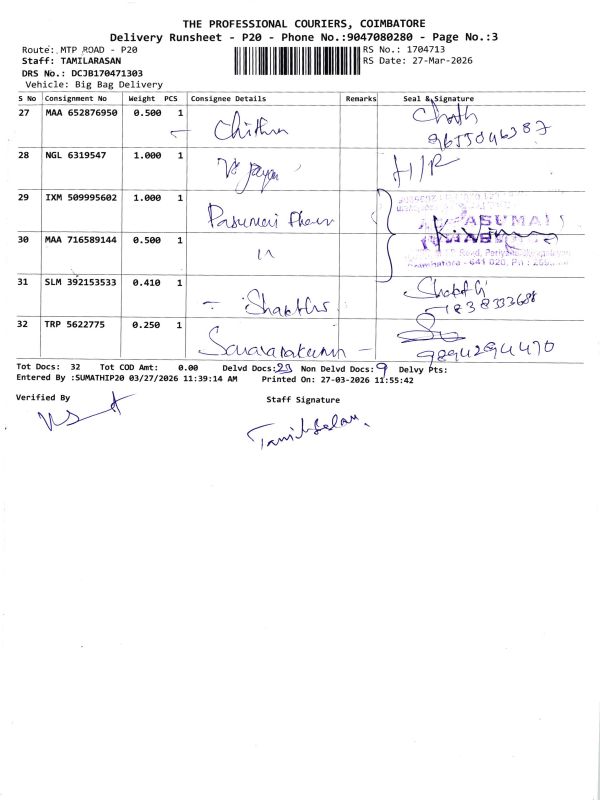 THE PROFESSIONAL COURIERS, COIMBATORE
Delivery Runsheet - P20 - Phone No.:9047080280 - Page No.:3
Route: MTP ROAD - P20
RS No.: 1704713
Staff: TAMILARASAN
RS Date: 27-Mar-2026
DRS No.: DCJB170471303
Vehicle: Big Bag Delivery
S No Consignment No Weight PCS Consignee Details Remarks Seal & Signature
27 MAA 652876950 0.500 1 Chithra
28 NGL 6319547 1.000 1 H/R
29 IXM 509995602 1.000 1 Pasumai
30 MAA 716589144 0.500 1 "
PASUMAI
31 SLM 392153533 0.410 1 Shakthi
32 TRP 5622775 0.250 1 Saravanakumar
9894294470
Tot Docs: 32 Tot COD Amt: 0.00 Delvd Docs: 23 Non Delvd Docs: 9 Delvy Pts:
Entered By :SUMATHIP20 03/27/2026 11:39:14 AM Printed On: 27-03-2026 11:55:42
Verified By
Staff Signature